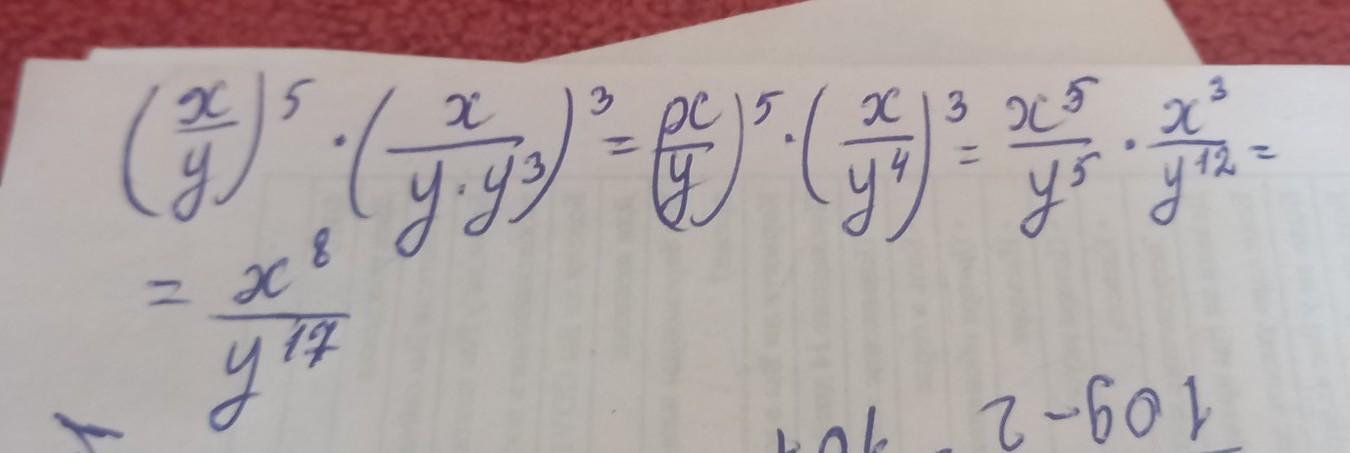 (x/y)^5 · (x/(y·y^3))^3 = (x/y)^5 · (x/y^4)^3 = x^5/y^5 · x^3/y^12 =
= x^8/y^17